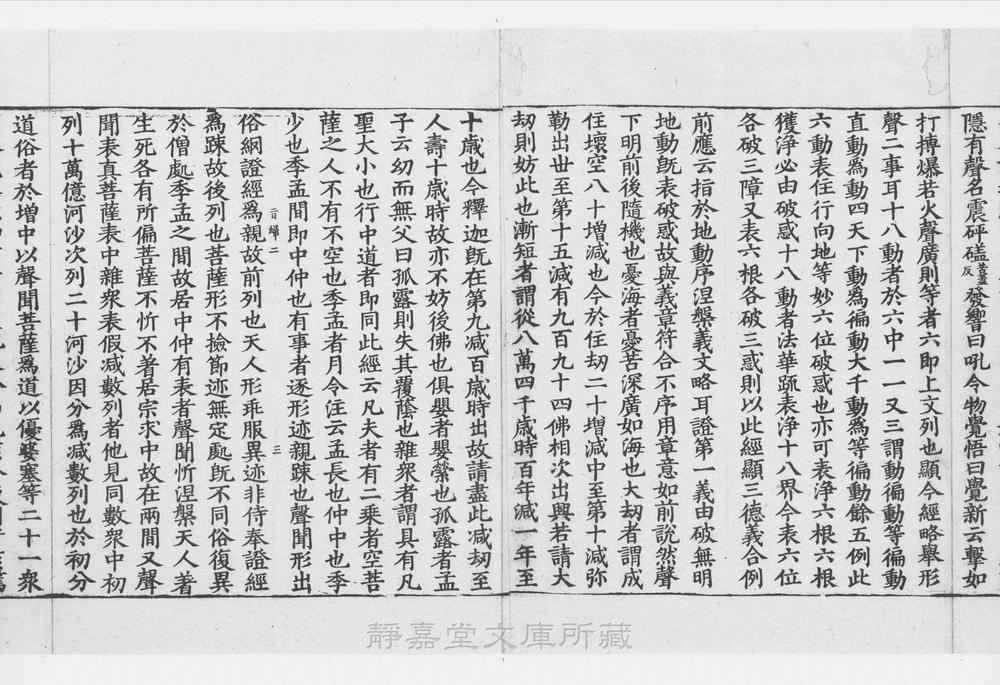 隱有聲名震砰磕苦盍反發響曰吼令物覺悟曰覺新云擊如
打搏爆若火聲廣則等者六即上文列也顯今經略舉形
聲二事耳十八動者於六中一一又三謂動徧動等徧動
直動為動四天下動為徧動大千動為等徧動餘五例此
六動表住行向地等妙六位破惑也亦可表淨六根六根
獲淨必由破惑十八動者法華䟽表淨十八界今表六位
各破三障又表六根各破三惑則以此經顯三德義合例
前應云指於地動序涅槃義文略耳證第一義由破無明
地動旣表破惑故與義章符合不序用章意如前說然聲
下明前後隨機也憂海者憂苦深廣如海也大劫者謂成
住壞空八十增減也今於住劫二十增減中至第十減弥
勒出世至第十五減有九百九十四佛相次出興若請大
劫則妨此也漸短者謂從八萬四千歲時百年減一年至
十歲也今釋迦旣在第九減百歲時出故請盡此減劫至
人壽十歲時故亦不妨後佛也俱嬰者嬰縈也孤露者孟
子云幼而無父曰孤露則失其覆蔭也雜衆者謂具有凡
聖大小也行中道者即同此經云凡夫者有二乘者空菩
薩之人不有不空也季孟者月令注云孟長也仲中也季
少也季孟間即中仲也有事者逐形迹親踈也聲聞形出
俗網證經為親故前列也天人形乖服異迹非侍奉證經
為踈故後列也菩薩形不撿節迹無定處旣不同俗復異
於僧處季孟之間故居中仲有表者聲聞忻涅槃天人著
生死各有所偏菩薩不忻不著居宗求中故在兩間又聲
聞表真菩薩表中雜衆表假減數列者他見同數衆中初
列十萬億河沙次列二十河沙因分為減數列也於初分
道俗者於增中以聲聞菩薩為道以優婆塞等二十一衆
三
靜嘉堂文庫所藏